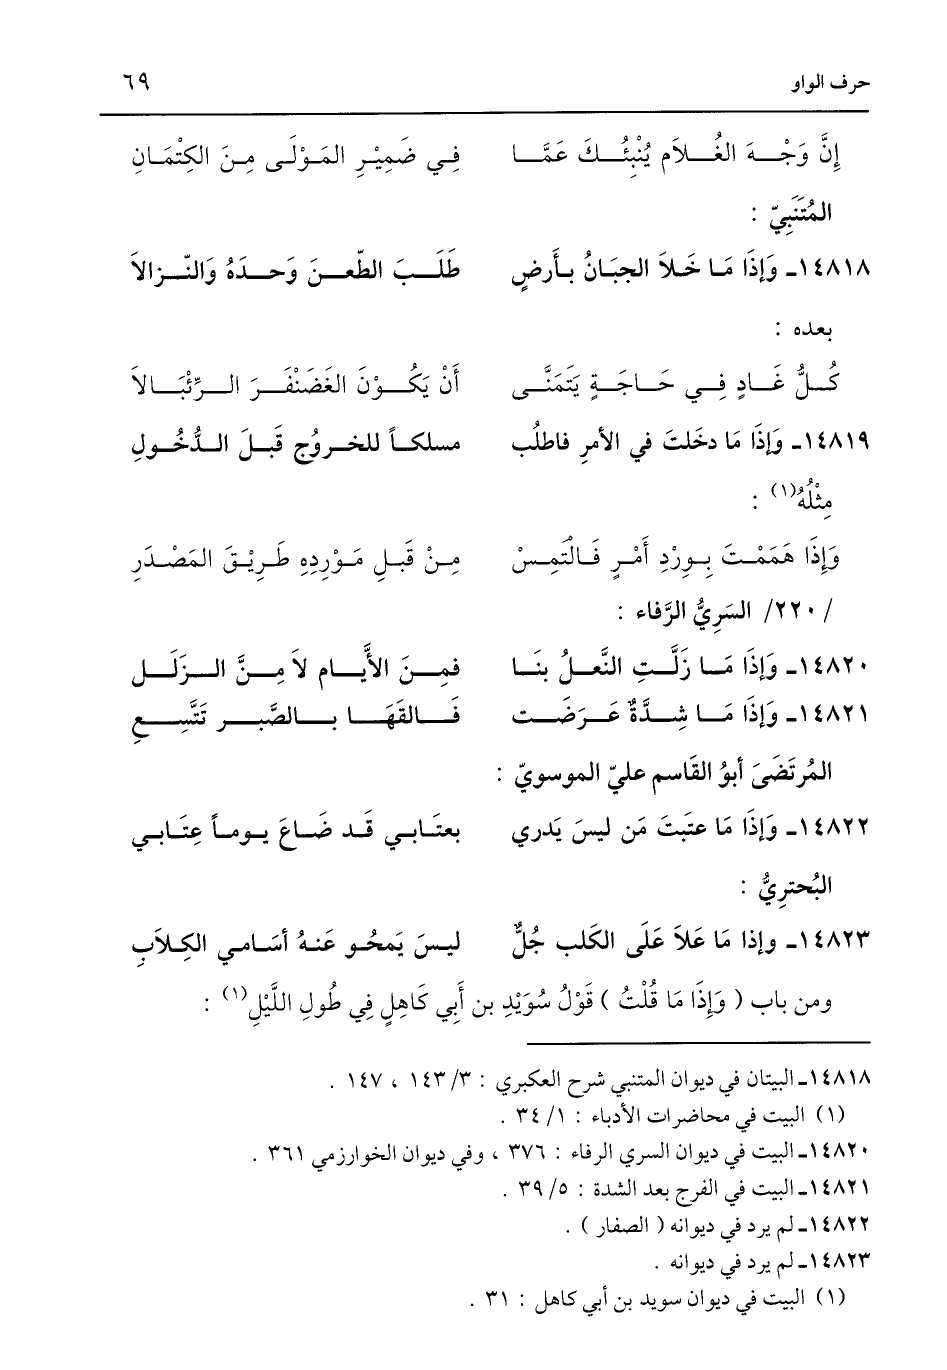 حرف الواو ٦٩
إِنَّ وَجْهَ الغُلاَمِ يُنْبِئُكَ عَمَّا فِي ضَمِيْرِ المَوْلَى مِنَ الكِتْمَانِ
المُتَنَبِيّ :
١٤٨١٨ـ وَإِذَا مَا خَلاَ الجبَانُ بأَرضٍ طَلَبَ الطّعنَ وَحدَهُ وَالنّزالاَ
بعده :
كُلُّ غَادٍ فِي حَاجَةٍ يَتَمَنَّى أَنْ يَكُوْنَ الغَضَنْفَرَ الرِّئْبَالاَ
١٤٨١٩ـ وَإِذَا مَا دخَلتَ في الأمرِ فاطلُب مسلكاً للخروُج قَبلَ الدُّخُولِ
مِثْلُهُ(١) :
وَإِذَا هَمَمْتَ بِورْدِ أَمْرٍ فَالْتَمِسْ مِنْ قَبلِ مَوْرِدِهِ طَرِيْقَ المَصْدَرِ
/٢٢٠/ السَرِيُّ الرَّفاء :
١٤٨٢٠ـ وَإِذَا مَا زَلَّتِ النَّعلُ بنَا فمِنَ الأَيَّامِ لاَ مِنَّ الزلَل
١٤٨٢١ـ وَإِذَا مَا شِدَّةٌ عَرَضَت فَالقَهَا بالصَّبر تَتَّسِعِ
المُرتَضَىَ أبوُ القَاسم عليّ الموسويّ :
١٤٨٢٢ـ وَإِذَا مَا عتَبتَ مَن ليسَ يَدري بعتَابي قَد ضَاعَ يوماً عِتَابي
البُحتريُّ :
١٤٨٢٣ـ وإذا مَا عَلاَ عَلَى الكَلب جُلٌّ ليسَ يَمحُو عَنهُ أسَامي الكِلاَبِ
ومن باب ( وَإِذَا مَا قُلْتُ ) قَوْلُ سُوَيْدِ بن أَبِي كَاهِلٍ فِي طُولِ اللَّيْلِ(١) :
١٤٨١٨ـ البيتان في ديوان المتنبي شرح العكبري : ٣/ ١٤٣ ، ١٤٧ .
(١) البيت في محاضرات الأدباء : ١/ ٣٤ .
١٤٨٢٠ـ البيت في ديوان السري الرفاء : ٣٧٦ ، وفي ديوان الخوارزمي ٣٦١ .
١٤٨٢١ـ البيت في الفرج بعد الشدة : ٥/ ٣٩ .
١٤٨٢٢ـ لم يرد في ديوانه ( الصفار ) .
١٤٨٢٣ـ لم يرد في ديوانه .
(١) البيت في ديوان سويد بن أبي كاهل : ٣١ .